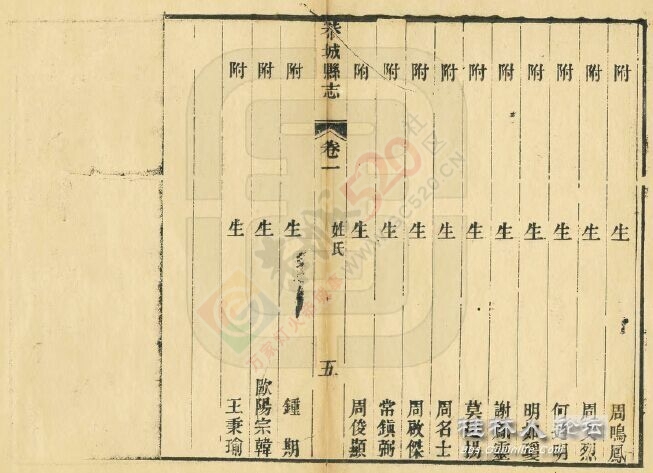 附生 周鳴鳳
附生 周 烈
附生 何
附生 明
附生 謝 靈
附生 莫
附生 周名士
附生 周啟傑
附生 常鎮弼
附生 周俊顯
恭城縣志 卷一 姓氏 五
附生 鍾期
附生 歐陽宗韓
附生 王秉瑜
桂林人论坛